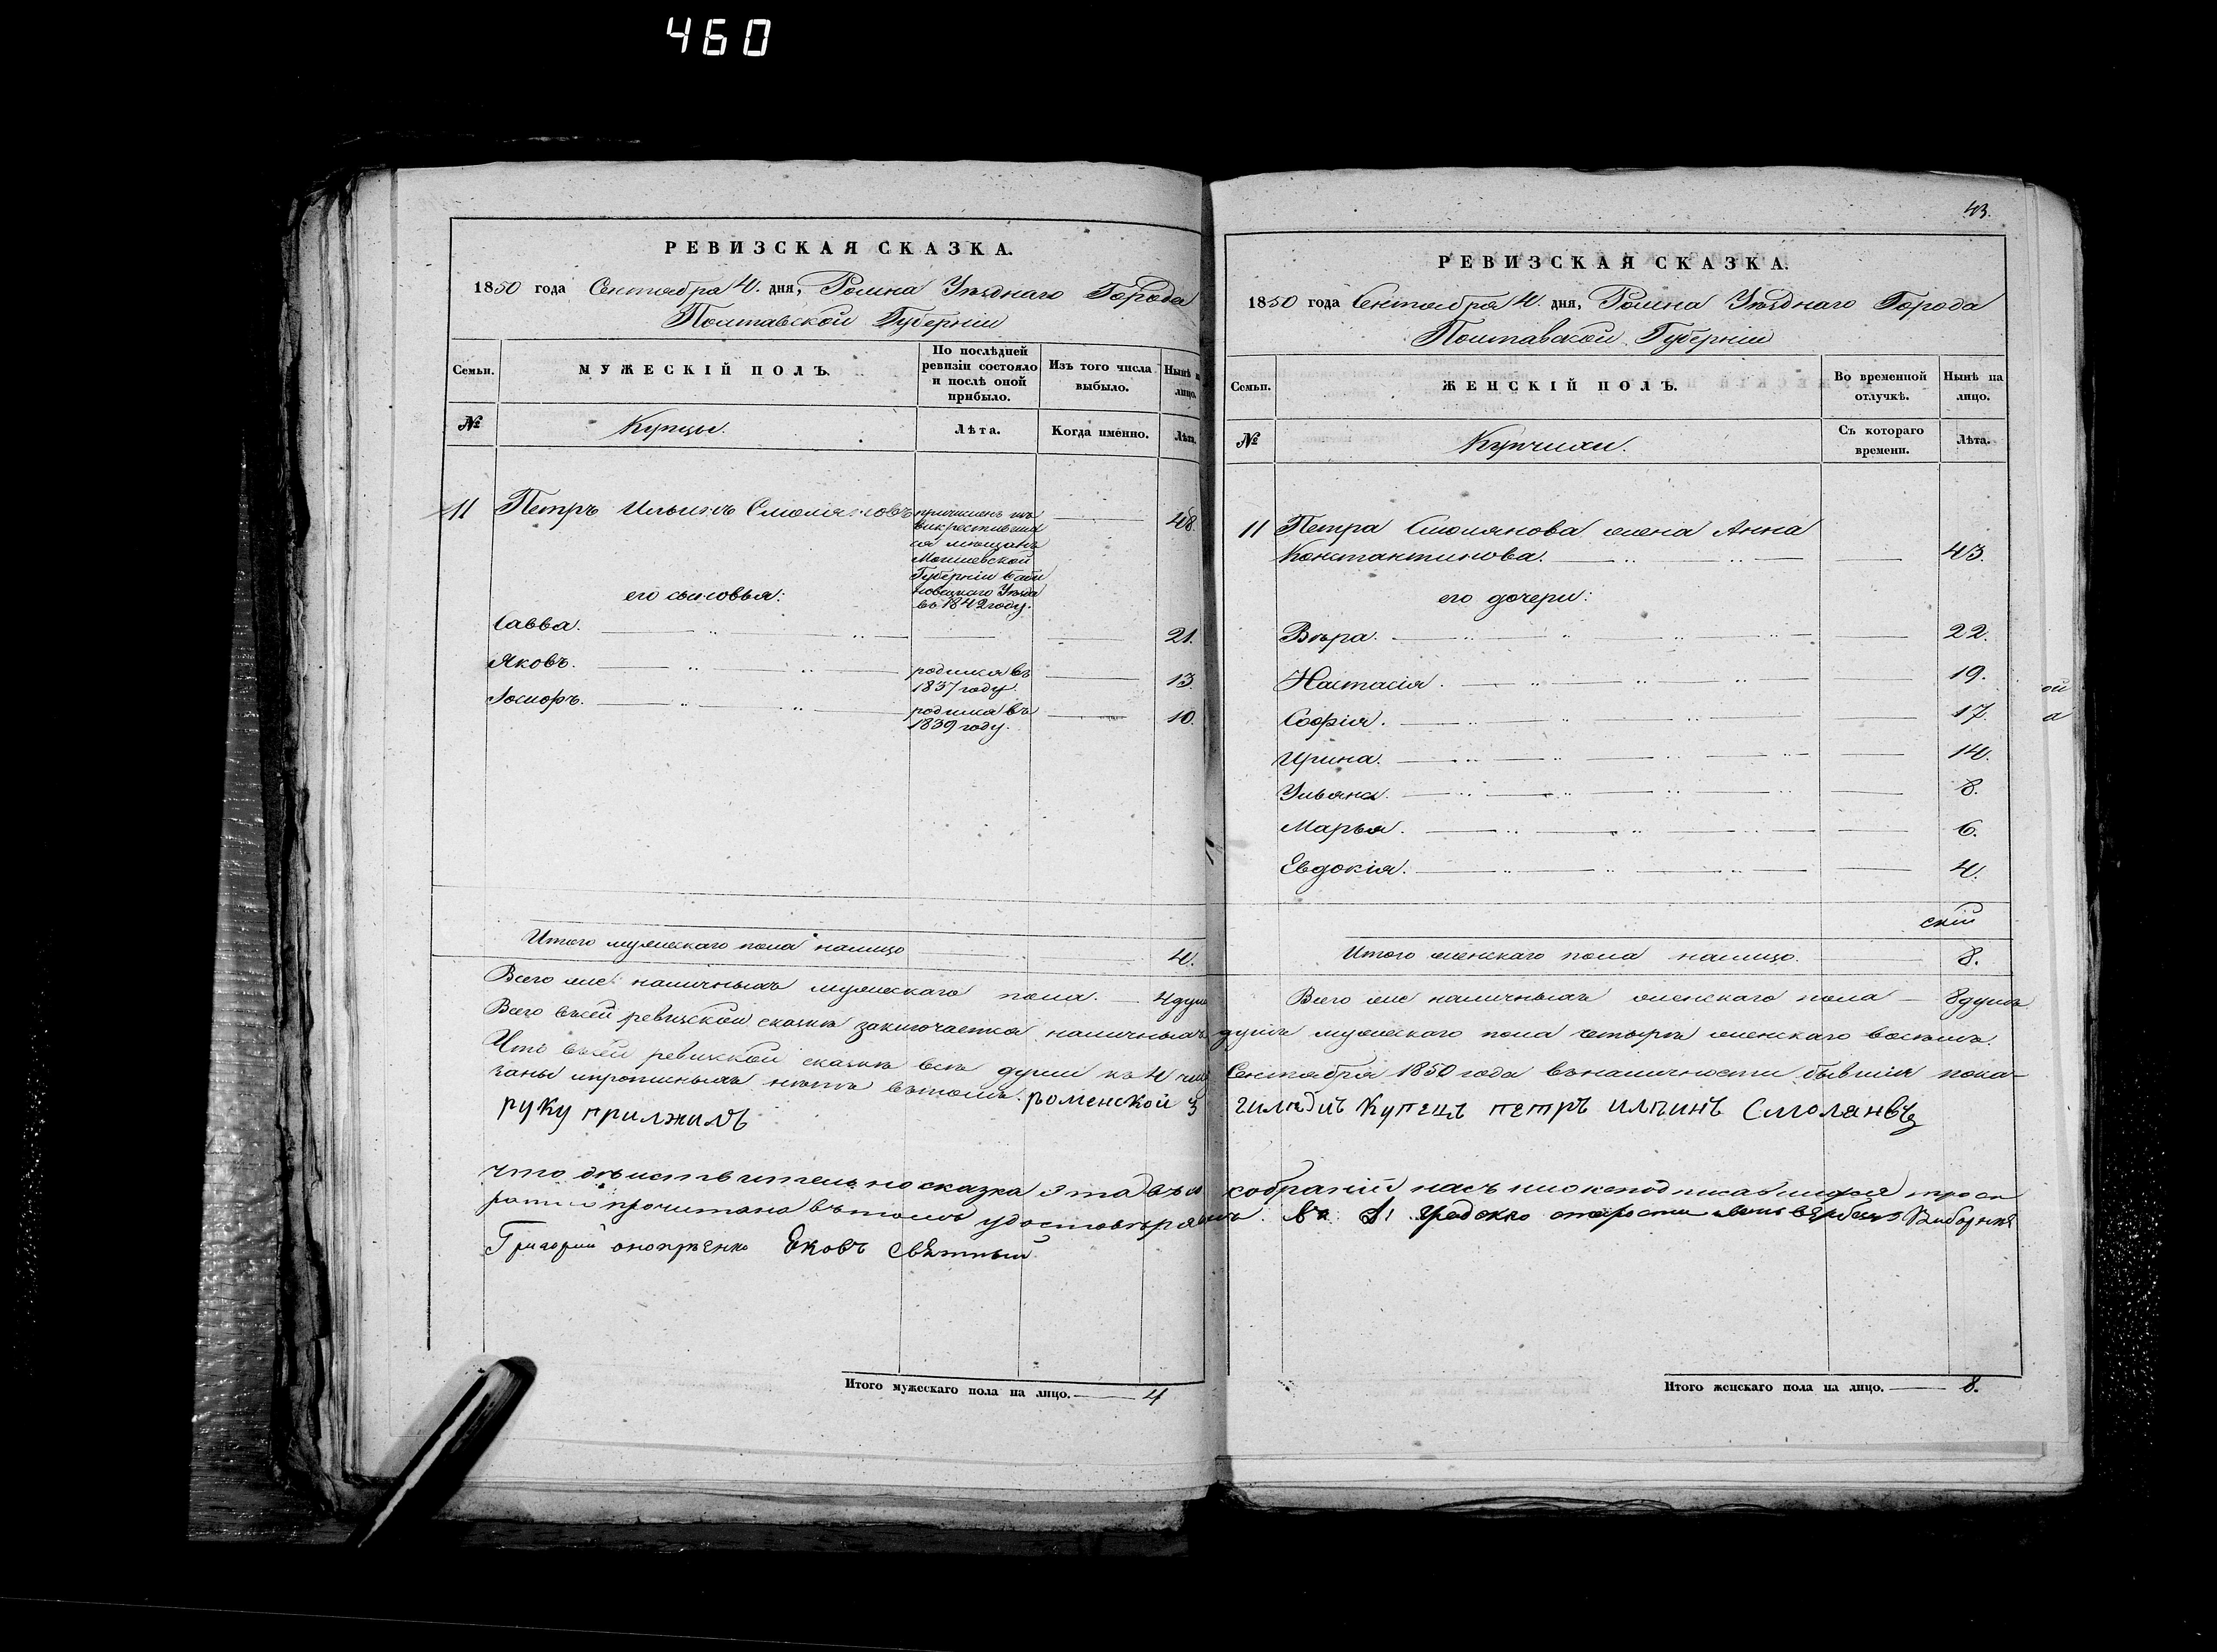 460
РЕВИЗСКАЯ СКАЗКА.
1850 года Сентября 4. дня, Ромна Уѣзднаго Города
Полтавской Губерніи
Семьи.
МУЖЕСКІЙ ПОЛЪ.
По послѣдней ревизіи состояло и послѣ оной прибыло.
Изъ того числа выбыло.
Нынѣ на лицо.
№
Купцы.
Лѣта.
Когда именно.
Лѣта.
11 Петръ Ильинъ Смоляновъ 48.
причисленъ изъ
выкрестивших
ся мещанъ
Могилевской
Губерніи Баби
новецкаго Уѣзда
въ 1842 году.
его сыновья:
Савва. 21.
Яковъ. родился въ 1837 году. 13.
родился въ 1839 году. 10.
Итого мужескаго пола налицо 4.
Всего же наличныхъ мужескаго пола. 4 душ
43.
РЕВИЗСКАЯ СКАЗКА.
1850 года Сентября 4. дня, Ромна Уѣзднаго Города
Полтавской Губерніи
Семьи.
ЖЕНСКІЙ ПОЛЪ.
Во временной отлучкѣ.
Нынѣ на лицо.
№
Купчихи.
Съ котораго времени.
Лѣта.
11 Петра Смолянова жена Анна
Константинова. 43.
его дочери:
Вѣра. 22.
Настасія. 19.
Софія. 17.
Ирина. 14.
Ульяна. 8.
Марья. 6.
Евдокія. 4.
скій
ой
а
Итого женскаго пола налицо. 8.
Всего же наличныхъ женскаго пола 8 душъ
Всего въ сей ревизской сказкѣ заключается наличныхъ душъ мужескаго пола четыре женскаго восемь.
Что въ сей ревизской сказкѣ всѣ души къ 4 чис Сентября 1850 года въ наличности бывшія пока-
заны и прописныхъ нѣтъ въ томъ. роменской 3 гилъдиъ Купецъ петръ илъинъ Смолянвъ
руку прилжилъ
что дѣиствително сказка эта въ собраніи насъ нижеподписавшихся
прочитана въ томъ удостовѣряемъ. Градскаго старости Виборние
Григорий онопрѣенко Яковъ
Итого мужескаго пола на лицо. 4
Итого женскаго пола на лицо. 8.